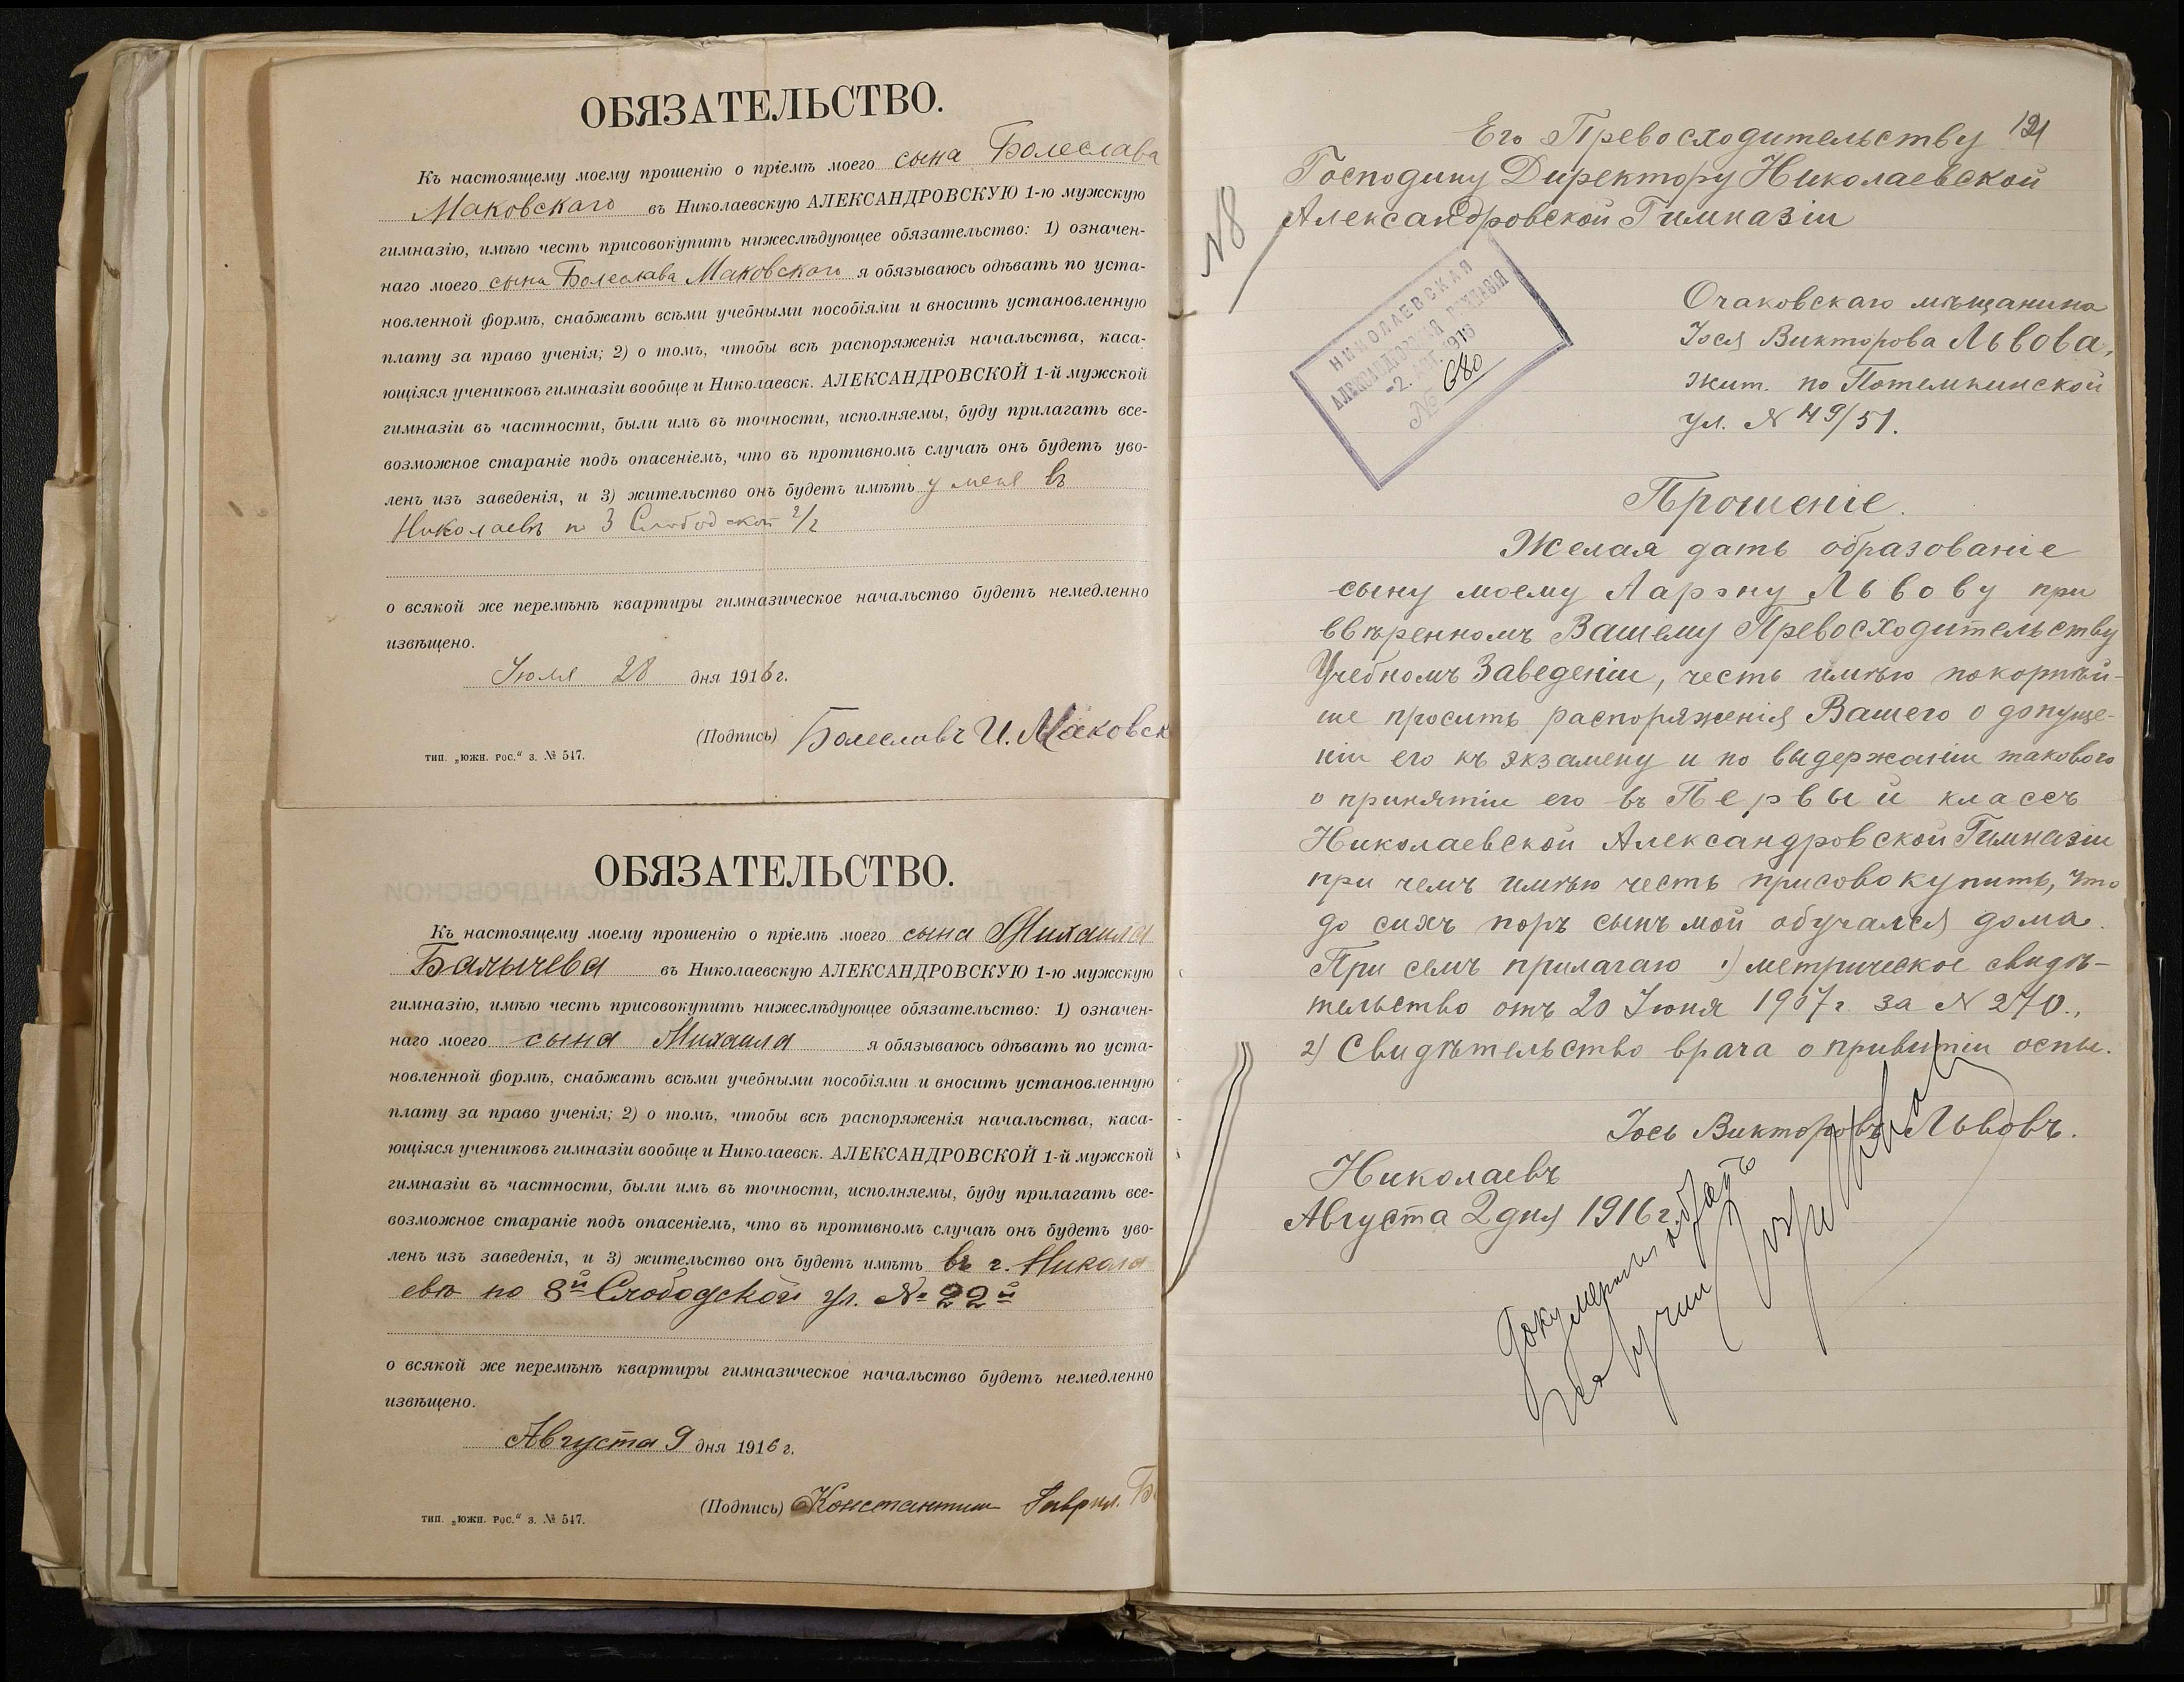 ОБЯЗАТЕЛЬСТВО.
Къ настоящему моему прошенію о пріемѣ моего сына Болеслава
Маковскаго въ Николаевскую АЛЕКСАНДРОВСКУЮ 1-ю мужскую
гимназію, имѣю честь присовокупить нижеслѣдующее обязательство: 1) означен-
наго моего сына Болеслава Маковскаго я обязываюсь одѣвать по уста-
новленной формѣ, снабжать всѣми учебными пособіями и вносить установленную
плату за право ученія; 2) о томъ, чтобы всѣ распоряженія начальства, каса-
ющіяся учениковъ гимназіи вообще и Николаевск. АЛЕКСАНДРОВСКОЙ 1-й мужской
гимназіи въ частности, были имъ въ точности, исполняемы, буду прилагать все-
возможное стараніе подъ опасеніемъ, что въ противномъ случаѣ онъ будетъ уво-
ленъ изъ заведенія, и 3) жительство онъ будетъ имѣть у меня въ
Николаевѣ по 3 Слободской 2/2
о всякой же перемѣнѣ квартиры гимназическое начальство будетъ немедленно
извѣщено.
Іюля 28 дня 1916 г.
(Подпись) Болеславъ И. Маковск
тип. „южн. рос.“ з. № 547.
ОБЯЗАТЕЛЬСТВО.
Къ настоящему моему прошенію о пріемѣ моего сына Михаила
Балычева въ Николаевскую АЛЕКСАНДРОВСКУЮ 1-ю мужскую
гимназію, имѣю честь присовокупить нижеслѣдующее обязательство: 1) означен-
наго моего сына Михаила я обязываюсь одѣвать по уста-
новленной формѣ, снабжать всѣми учебными пособіями и вносить установленную
плату за право ученія; 2) о томъ, чтобы всѣ распоряженія начальства, каса-
ющіяся учениковъ гимназіи вообще и Николаевск. АЛЕКСАНДРОВСКОЙ 1-й мужской
гимназіи въ частности, были имъ въ точности, исполняемы, буду прилагать все-
возможное стараніе подъ опасеніемъ, что въ противномъ случаѣ онъ будетъ уво-
ленъ изъ заведенія, и 3) жительство онъ будетъ имѣть въ г. Никола
евѣ по 8й Слободской ул. № 22й
о всякой же перемѣнѣ квартиры гимназическое начальство будетъ немедленно
извѣщено.
Августа 9 дня 1916 г.
(Подпись) Константин Гаврил. Б
тип. „южн. рос.“ з. № 547.
121
Его Превосходительству
Господину Директору Николаевской
Александровской Гимназіи
N8
НИКОЛАЕВСКАЯ
АЛЕКСАНДРОВСКАЯ ГИМНАЗІЯ
-2. АВГ. 1916
№ 680
Очаковскаго мѣщанина
Іося Викторова Львова,
жит. по Потемкинской
ул. N 49/51.
Прошеніе.
Желая дать образованіе
сыну моему Аарэну Львову при
ввѣренномъ Вашему Превосходительству
Учебномъ Заведеніи, честь имѣю покорнѣй-
ше просить распоряженія Вашего о допуще-
ніи его къ экзамену и по выдержаніи таковаго
о принятіи его въ Первый классъ
Николаевской Александровской Гимназіи
при чемъ имѣю честь присовокупить, что
до сихъ поръ сынъ мой обучался дома.
При семъ прилагаю 1) метрическое свидѣ-
тельство отъ 20 Іюня 1907 г. за N 270.,
2) Свидѣтельство врача о привитіи оспы.
Іось Викторовъ Львовъ.
Николаевъ
Августа 2 дня 1916 г.
Документы обратно
получил